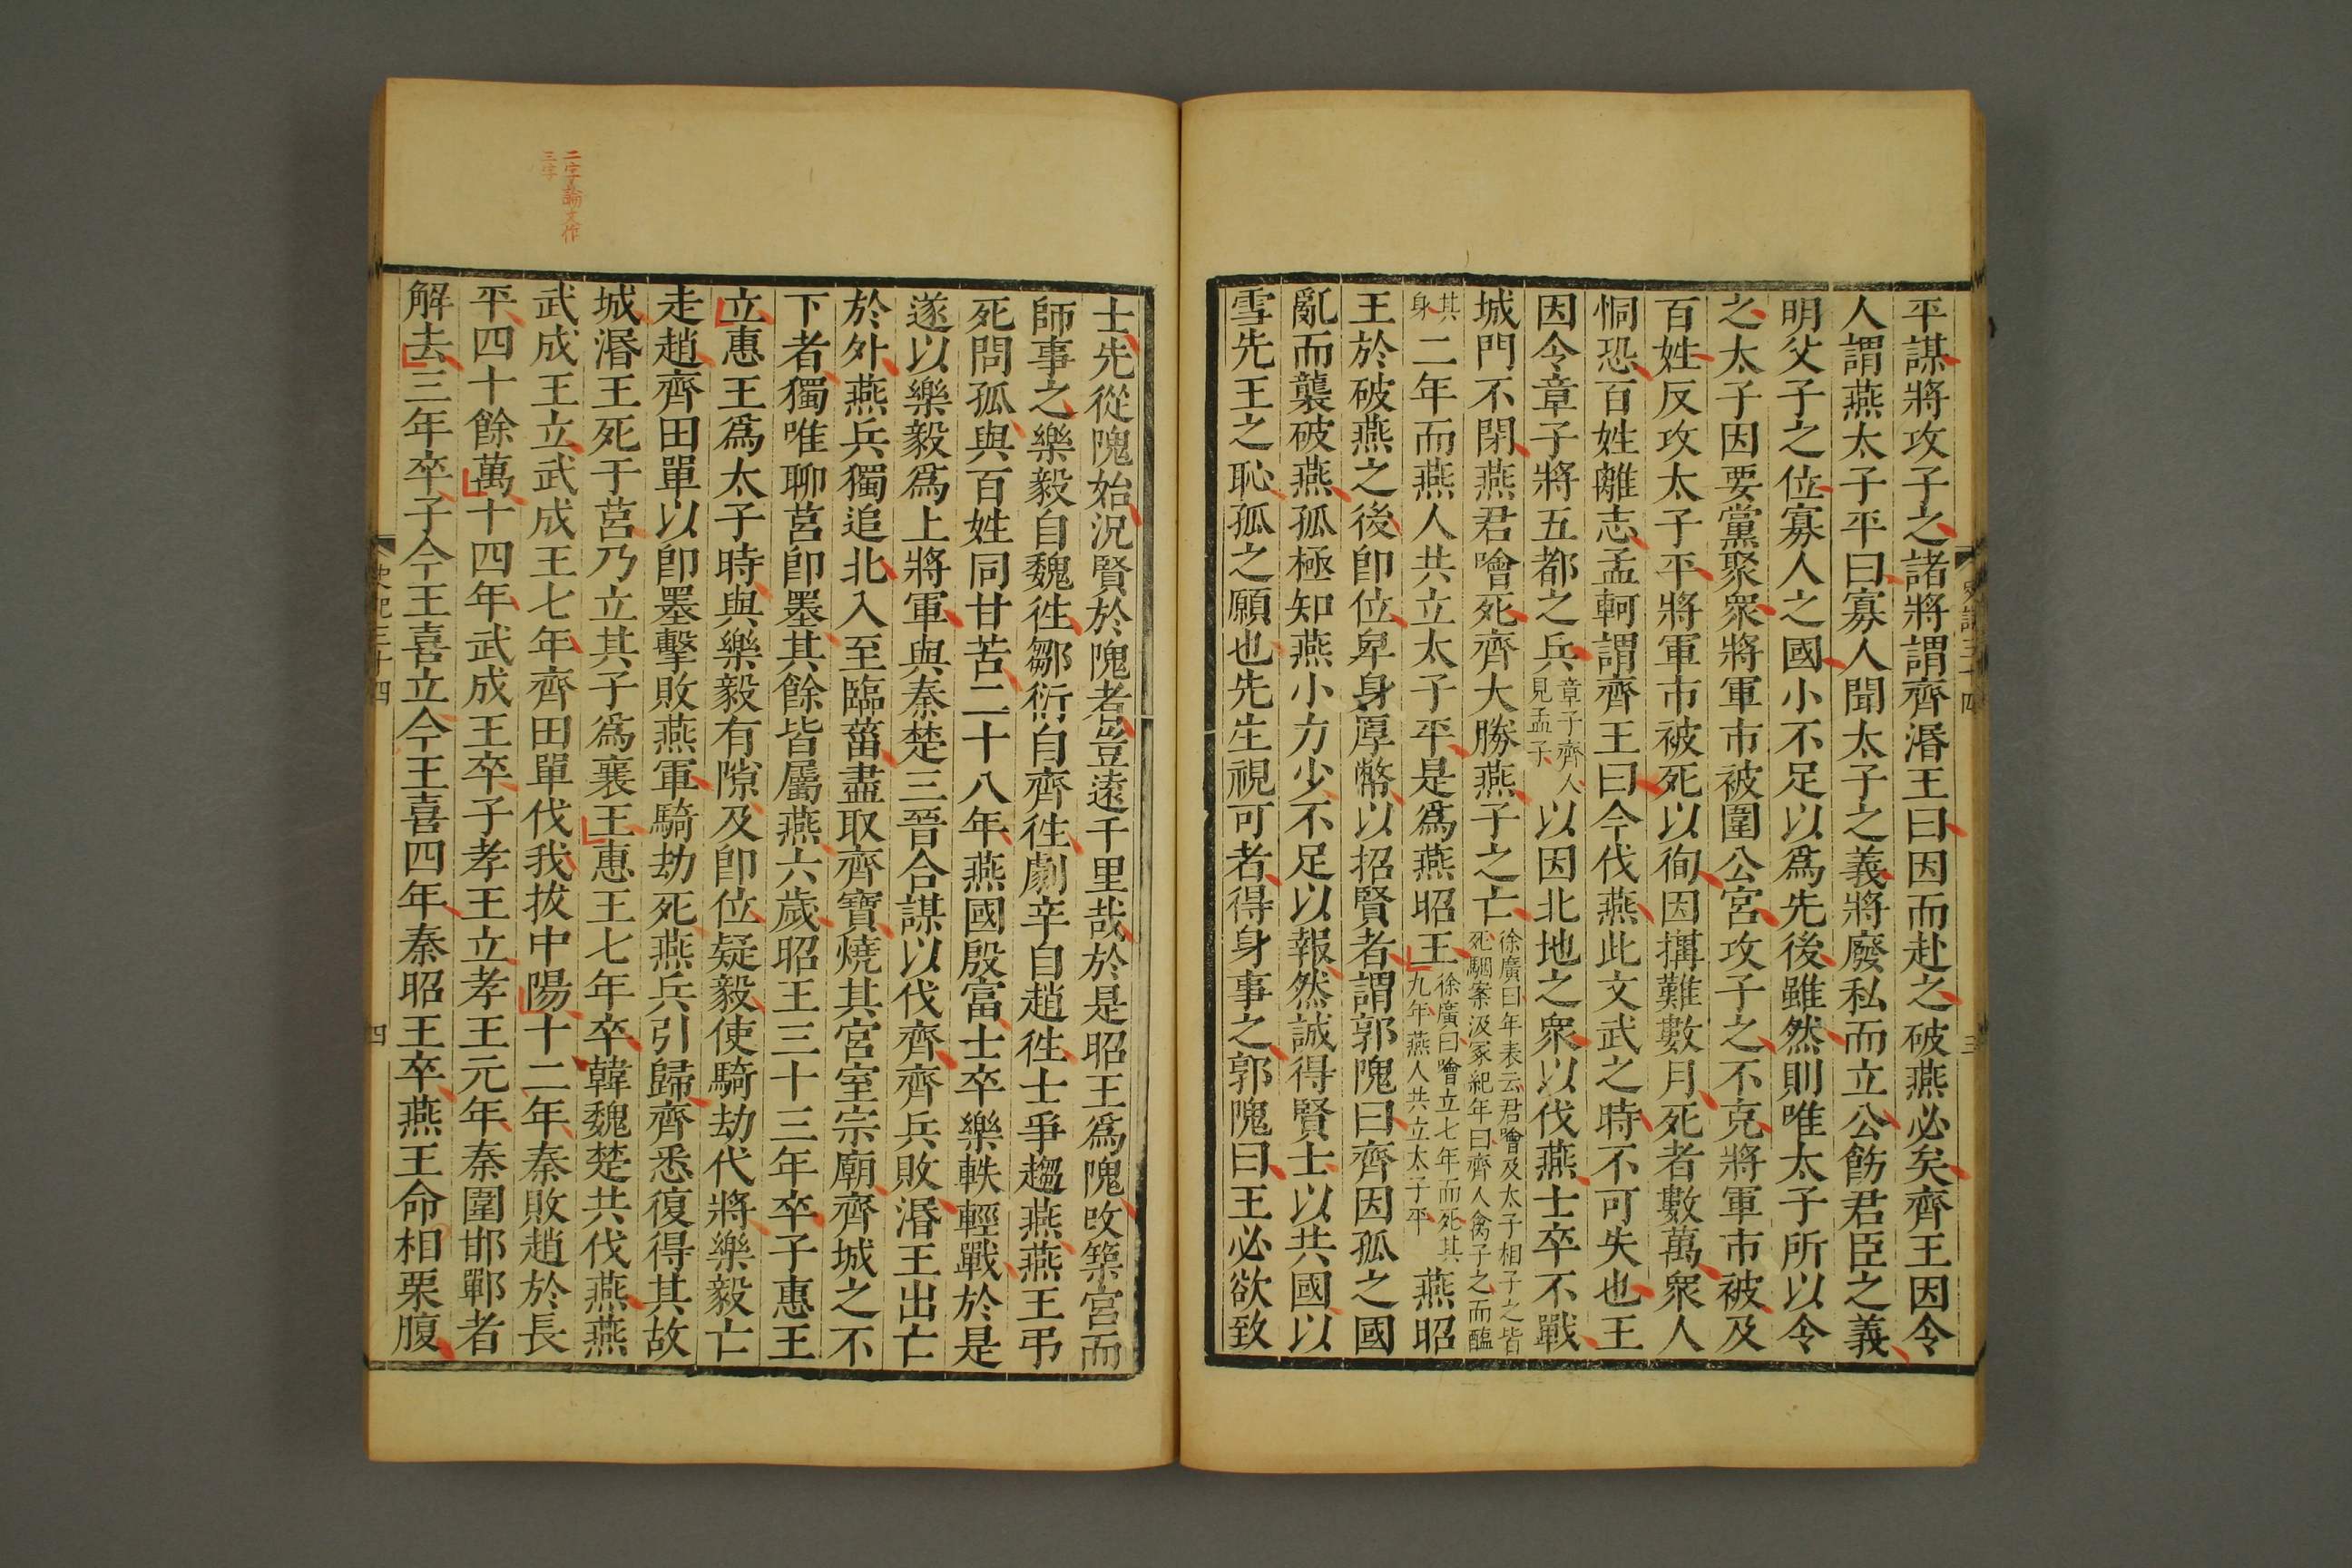 平謀將攻子之諸將謂齊湣王曰因而赴之破燕必矣齊王因令
人謂燕太子平曰寡人聞太子之義將廢私而立公飭君臣之義
明父子之位寡人之國小不足以爲先後雖然則唯太子所以令
之太子因要黨聚衆將軍市被圍公宮攻子之不克將軍市被及
百姓反攻太子平將軍市被死以徇因搆難數月死者數萬衆人
恫恐百姓離志孟軻謂齊王曰今伐燕此文武之時不可失也王
因令章子將五都之兵章子齊人見孟子以因北地之衆以伐燕士卒不戰
城門不閉燕君噲死齊大勝燕子之亡徐廣曰年表云君噲及太子相子之皆死駰案汲冢紀年曰齊人禽子之而醢
其身二年而燕人共立太子平是爲燕昭王徐廣曰噲立七年而死其九年燕人共立太子平燕昭
王於破燕之後卽位卑身厚幣以招賢者謂郭隗曰齊因孤之國
亂而襲破燕孤極知燕小力少不足以報然誠得賢士以共國以
雪先王之恥孤之願也先生視可者得身事之郭隗曰王必欲致
史記三十四
三
士先從隗始況賢於隗者豈遠千里哉於是昭王爲隗改築宮而
師事之樂毅自魏徃鄒衍自齊徃劇辛自趙徃士爭趨燕燕王弔
死問孤與百姓同甘苦二十八年燕國殷富士卒樂軼輕戰於是
遂以樂毅爲上將軍與秦楚三晉合謀以伐齊齊兵敗湣王出亡
於外燕兵獨追北入至臨菑盡取齊寶燒其宮室宗廟齊城之不
下者獨唯聊莒卽墨其餘皆屬燕六歲昭王三十三年卒子惠王
立惠王爲太子時與樂毅有隙及卽位疑毅使騎劫代將樂毅亡
走趙齊田單以卽墨擊敗燕軍騎劫死燕兵引歸齊悉復得其故
城湣王死于莒乃立其子爲襄王惠王七年卒韓魏楚共伐燕燕
武成王立武成王七年齊田單伐我拔中陽十二年秦敗趙於長
平四十餘萬十四年武成王卒子孝王立孝王元年秦圍邯鄲者
解去三年卒子今王喜立今王喜四年秦昭王卒燕王命相栗腹
史記三十四
四
二字論文作
三字